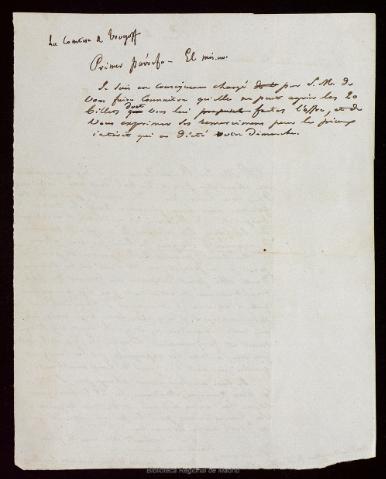 La Comtesse de
Primer párrafo - El mismo.
Je suis en conséquence chargé par S. M. de
Vous faire connaitre qu'elle ne peut agréer les 20
billets dont vous lui faites l'offre, et de
Vous exprimer ses remerciments pour le
intérêt qui a dicté votre démarche.
Biblioteca Regional de Madrid